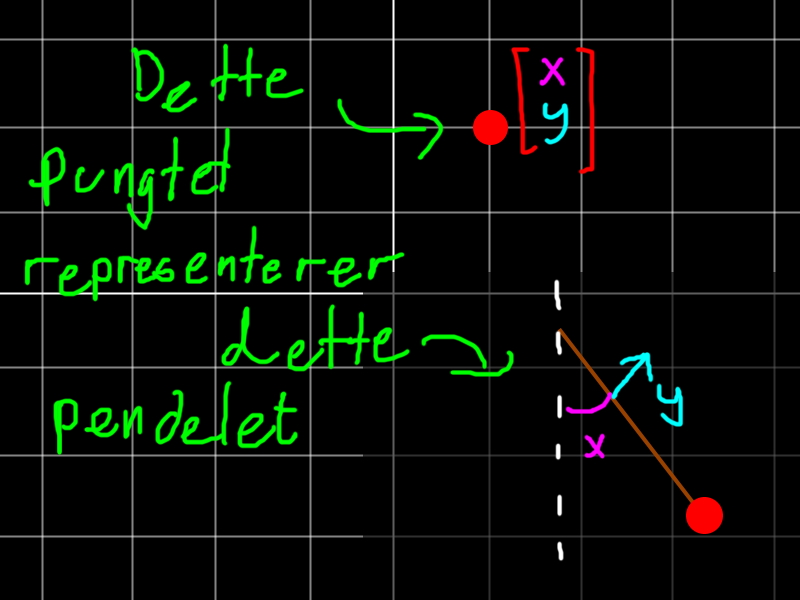 Dette
pungtet
representerer
dette
pendelet
x
y
y
x